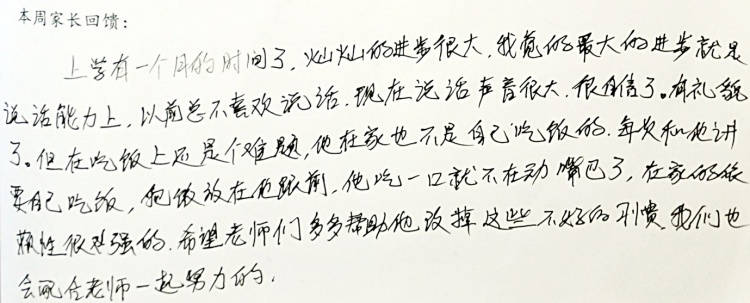 本周家长回馈：
上学有一个月的时间了，灿灿的进步很大，我觉的最大的进步就是
说话能力上，以前总不喜欢说话，现在说话声音很大，很自信了。有礼貌
了。但在吃饭上还是个难题，他在家也不是自己吃饭的，每次和他讲
要自己吃饭，包做放在他跟前，他吃一口就不在动嘴巴了，在家的依
赖性很强的，希望老师们多多帮助他改掉这些不好的习惯，我们也
会配合老师一起努力的，